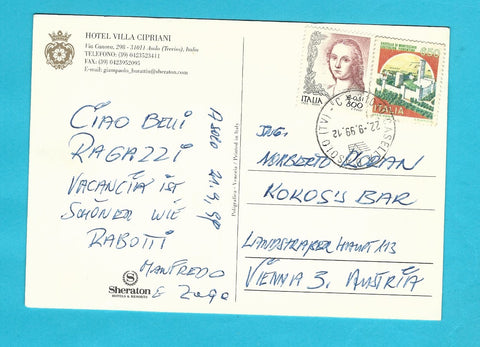 HOTEL VILLA CIPRIANI
Via Canova, 298 - 31011 Asolo (Treviso), Italia
TELEFONO: (39) 0423523411
FAX: (39) 0423952095
E-mail: giampaolo_burattin@sheraton.com
CIAO BELLI
RAGAZZI
VACANCIA IST
SCHÖNER WIE
RABOTTI
MANFREDO
&
ASOLO 21.9.99
Sheraton
HOTELS & RESORTS
Poligrafica - Venezia / Printed in Italy
ITALIA
800
850
ITALIA
22.9.99.12
ING.
NORBERTO
KOKOS'S BAR
LANDSTRASSER HAUPT 113
VIENNA 3. AUSTRIA